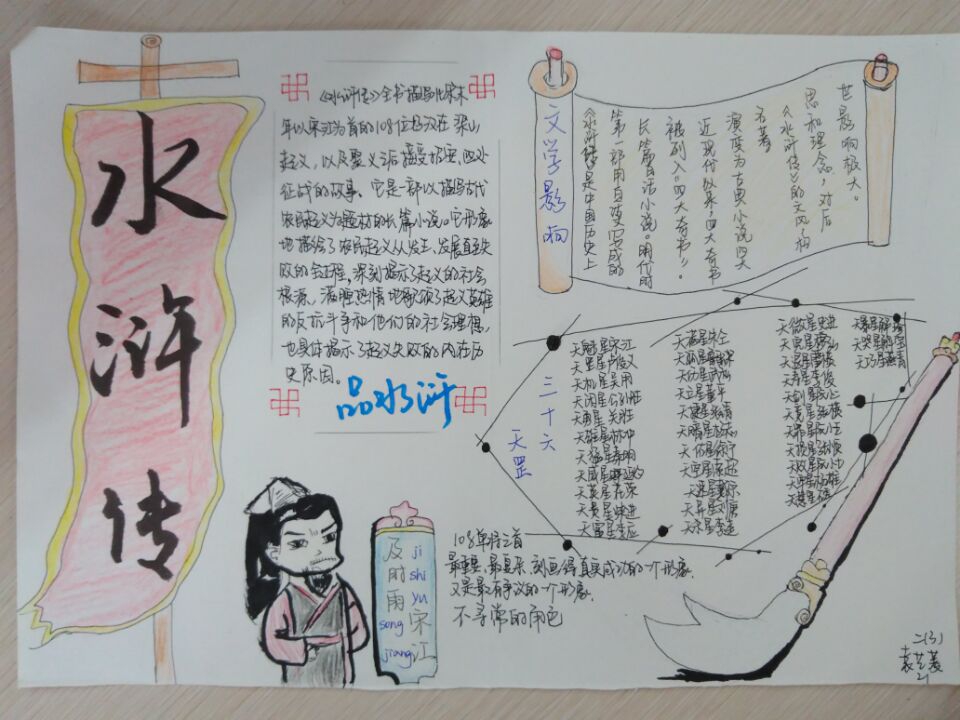 水浒传
《水浒传》全书描写北宋末
年以宋江为首的108位好汉在梁山
起义，以及聚义后接受招安，四处
征战的故事。它是一部以描写古代
农民起义为题材的长篇小说。它形象
地描绘了农民起义从发生、发展直至失
败的全过程，深刻揭示了起义的社会
根源，满腔热情地歌颂了起义英雄
的反抗斗争和他们的社会理想，
也具体揭示了起义失败的内在历
史原因。
品水浒
文学影响
《水浒传》是中国历史上
第一部用白话写成的
长篇章话小说。明代时
被列入“四大奇书”。
近现代以来，四大奇书
演变为古典小说四大
名著
《水浒传》的文风，构
思和理念，对后
世影响极大。
三十六
天罡
天魁星宋江
天罡星卢俊义
天机星吴用
天闲星公孙胜
天勇星关胜
天雄星林冲
天猛星秦明
天威星呼延灼
天英星花荣
天贵星柴进
天富星李应
天满星朱仝
天孤星鲁智深
天伤星武松
天立星董平
天捷星张清
天暗星杨志
天佑星徐宁
天空星索超
天速星戴宗
天异星刘唐
天杀星李逵
天微星史进
天究星穆弘
天退星雷横
天寿星李俊
天剑星阮小二
天竟星张横
天罪星阮小五
天损星张顺
天败星阮小七
天牢星杨雄
天慧星石秀
天暴星解珍
天哭星解宝
天巧星燕青
及时雨宋江
ji
shi
yu
song
jiang
108单将之首
最重要、最显赫、刻画得真实成功的一个形象，
又是最有争议的一个形象，
不寻常的角色
二(3)
21